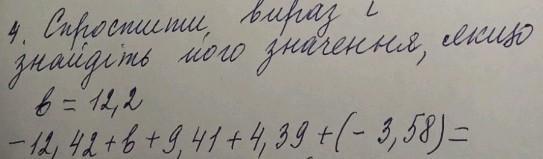 4. Спростити вираз і
знайдіть його значення, якщо
в = 12,2
-12,42+в+9,41+4,39+(-3,58)=